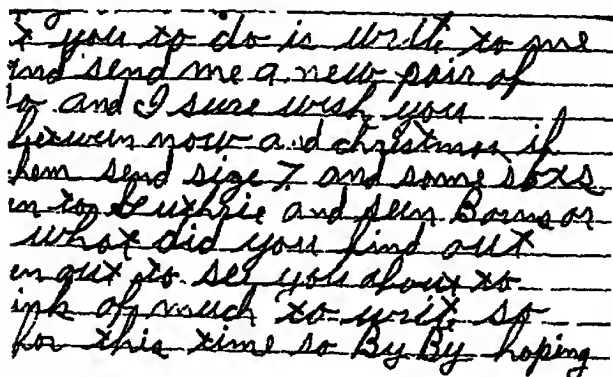 you to do is write to me
and send me a new pair of
and I sure wish you
between now a.d christmas if
hem send size 7 and some soxs
en to Guthrie and seen or
what did you find out
en out to see you about to
ink of much to write so
for this time so By By hoping